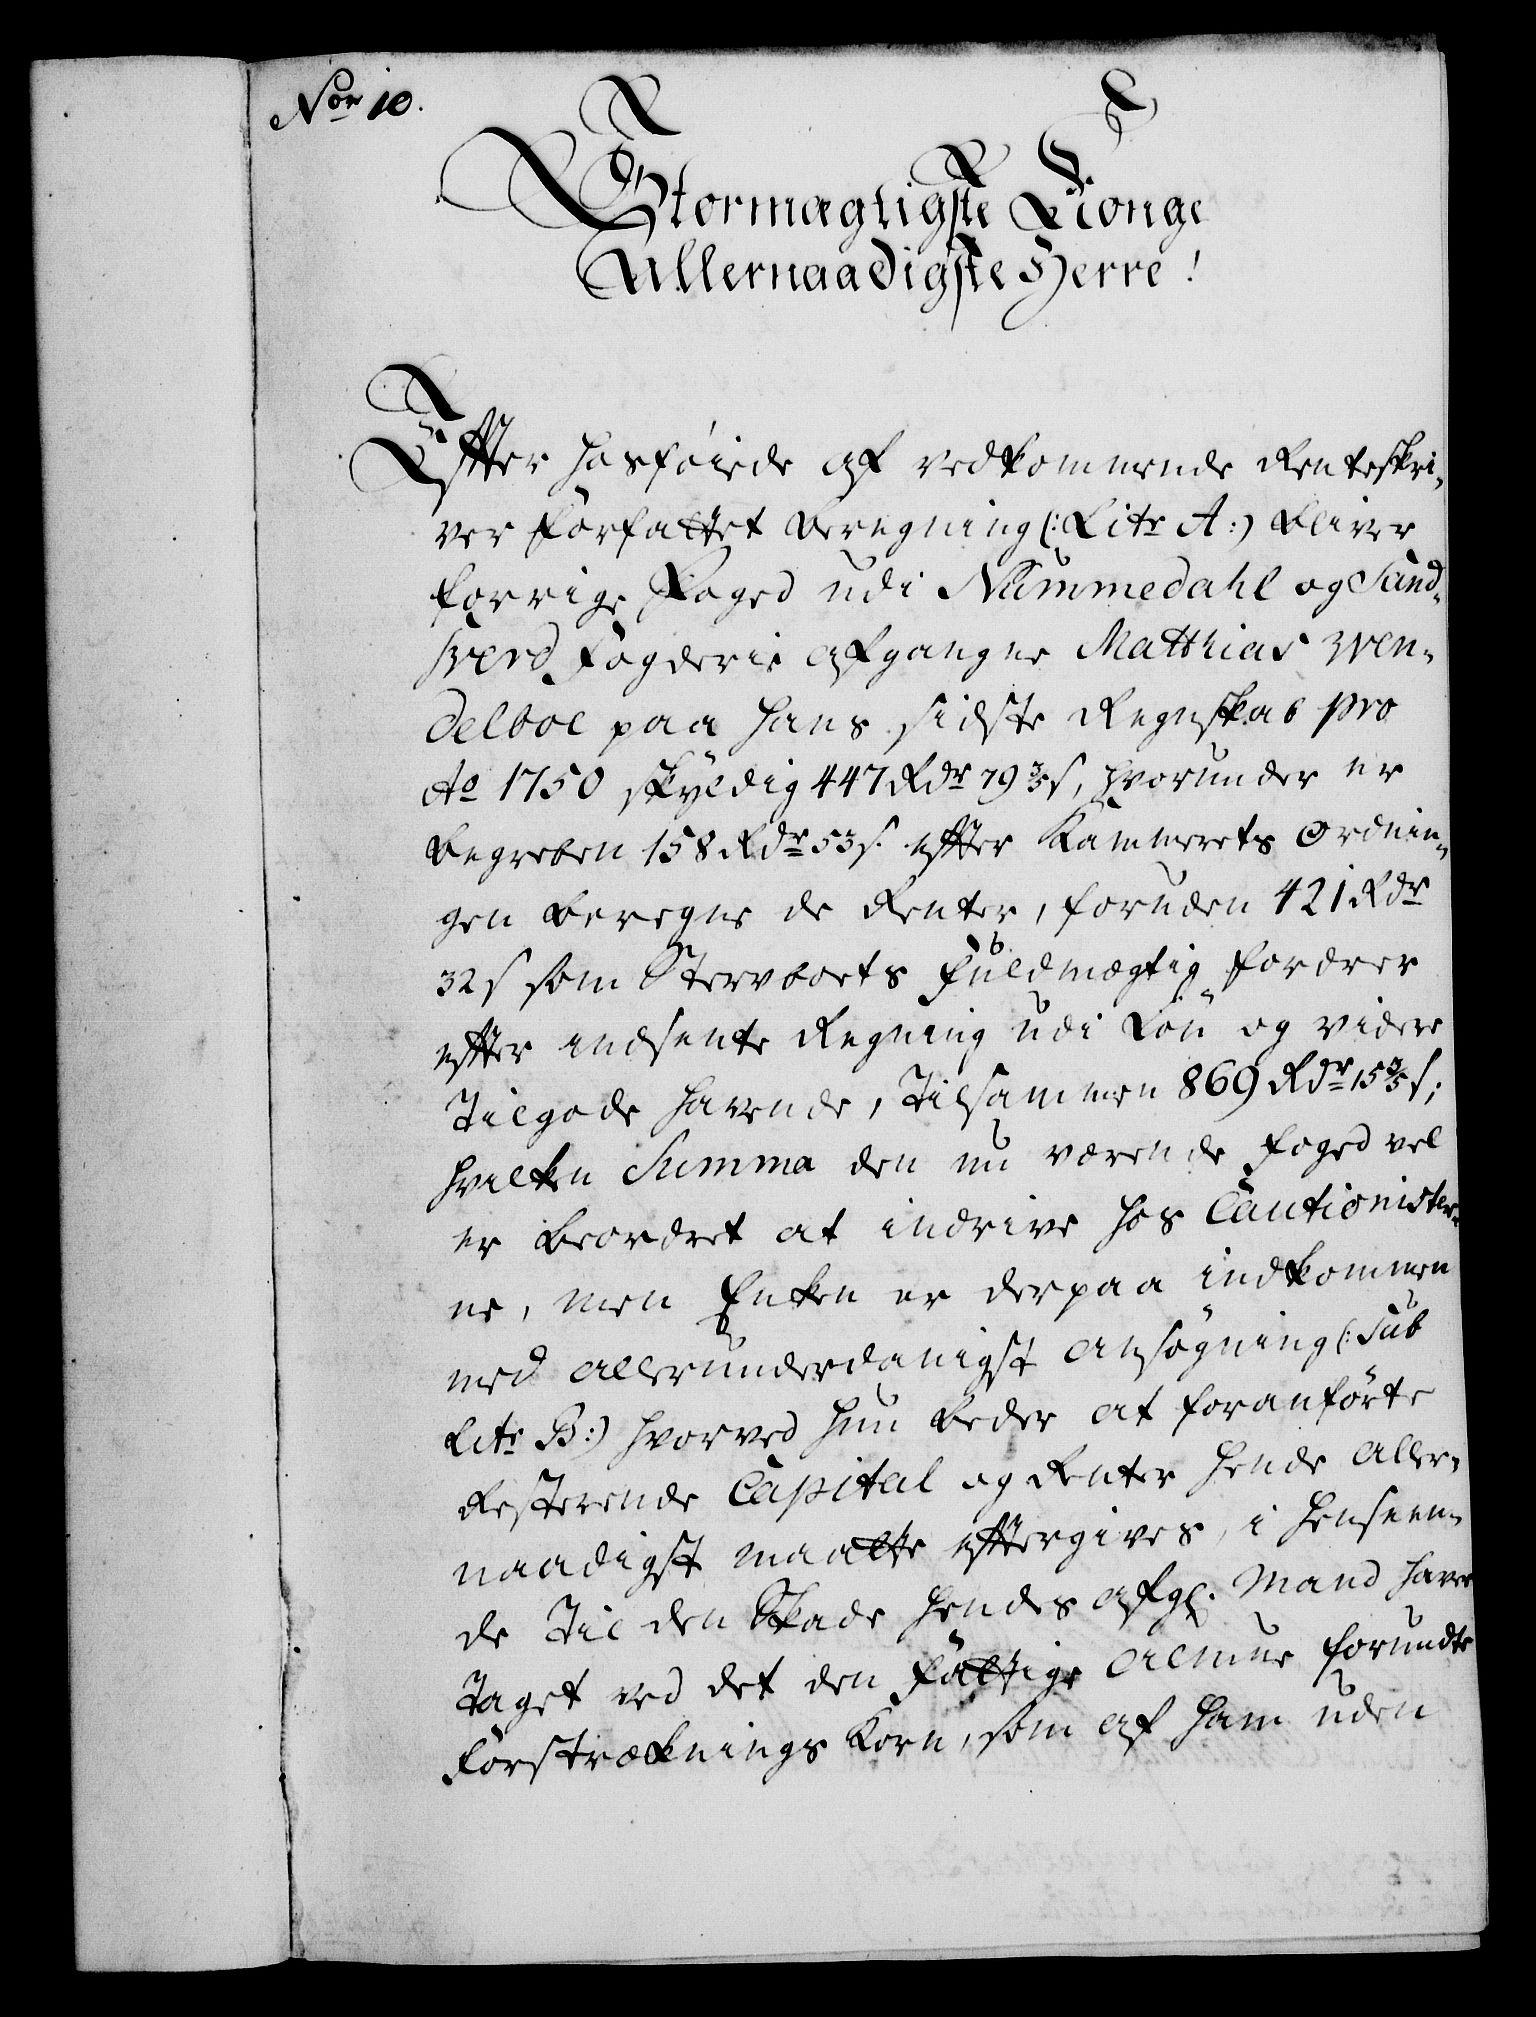 Nor 10.
Stormægtigste Konge
Allernaadigste Herre!
Effter hosføiede af vedkommende Renteskri-
ver forfattet Beregning (: Litr A:) bliver
forrige Foged udi Nummedahl og Sand-
sverd Fogderie afgangne Matthias Wen-
delboe paa hans sidste Regnskab pro
Ao 1750 skyldig 447 Rdr 79 3/5 s, hvorunder er
begreben 158 Rdr 53 s. effter Kammerets Ordnin-
gen beregne de Renter, foruden 421 Rdr
32 s som Stervboets Fuldmægtig fordrer
effter indsente Regning udi Løn og videre
Tilgode havende, Tilsammen 869 Rdr 15 3/5 s;
hvilken Summa den nu værende Foged vel
er beordret at indrive hos Cautionister-
ne, men Enken er derpaa indkommen
med allerunderdanigst Ansøgning (: Sub
Litr B:) hvorved hun beder at foranførte
Resterende Capital og Renter hende aller-
naadigst maatte efftergives, i henseen-
de Til den Skade hendes afg. Mand haver
Taget ved det den fattige Almue forundte
Forstræknings Korn, som af ham uden